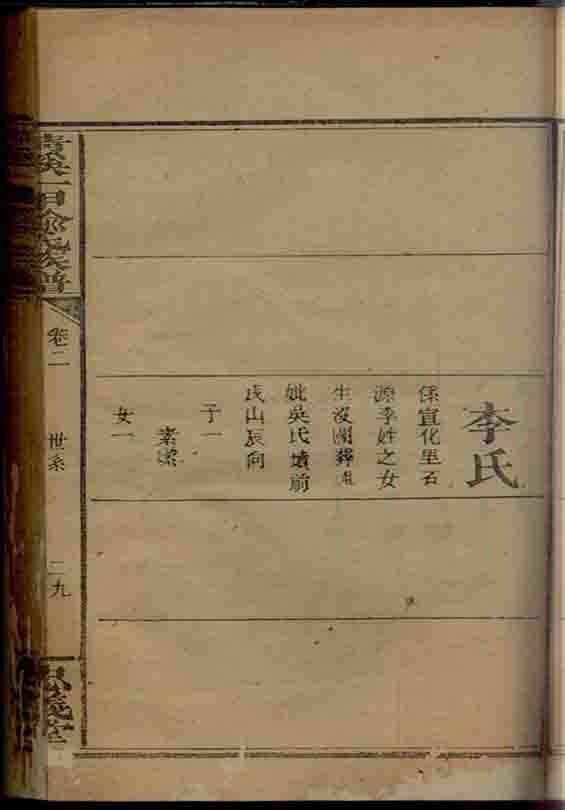 李氏
係宣化里石
源李姓之女
生沒闕葬
妣吳氏墳前
戌山辰向
子一
素
女一
一甲余氏族譜
卷二
世系
二九